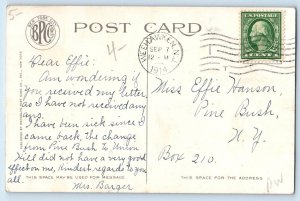 5-
BPC
POST CARD
4-
WEEHAWKEN, N.J.
SEP 7
12-M
1914
U.S. POSTAGE
Dear Effie:-
Am wondering if
you received my letter
as I have not received any
ans.
I have been sick since I
came back, the change
from Pine Bush to Union
Hill did not have a very good
effect on me, Kindest regards to you
all
Mrs. Barger
Miss Effie Hanson,
Pine Bush,
N. Y.
Box 210.
THIS SPACE MAY BE USED FOR MESSAGE
THIS SPACE FOR THE ADDRESS